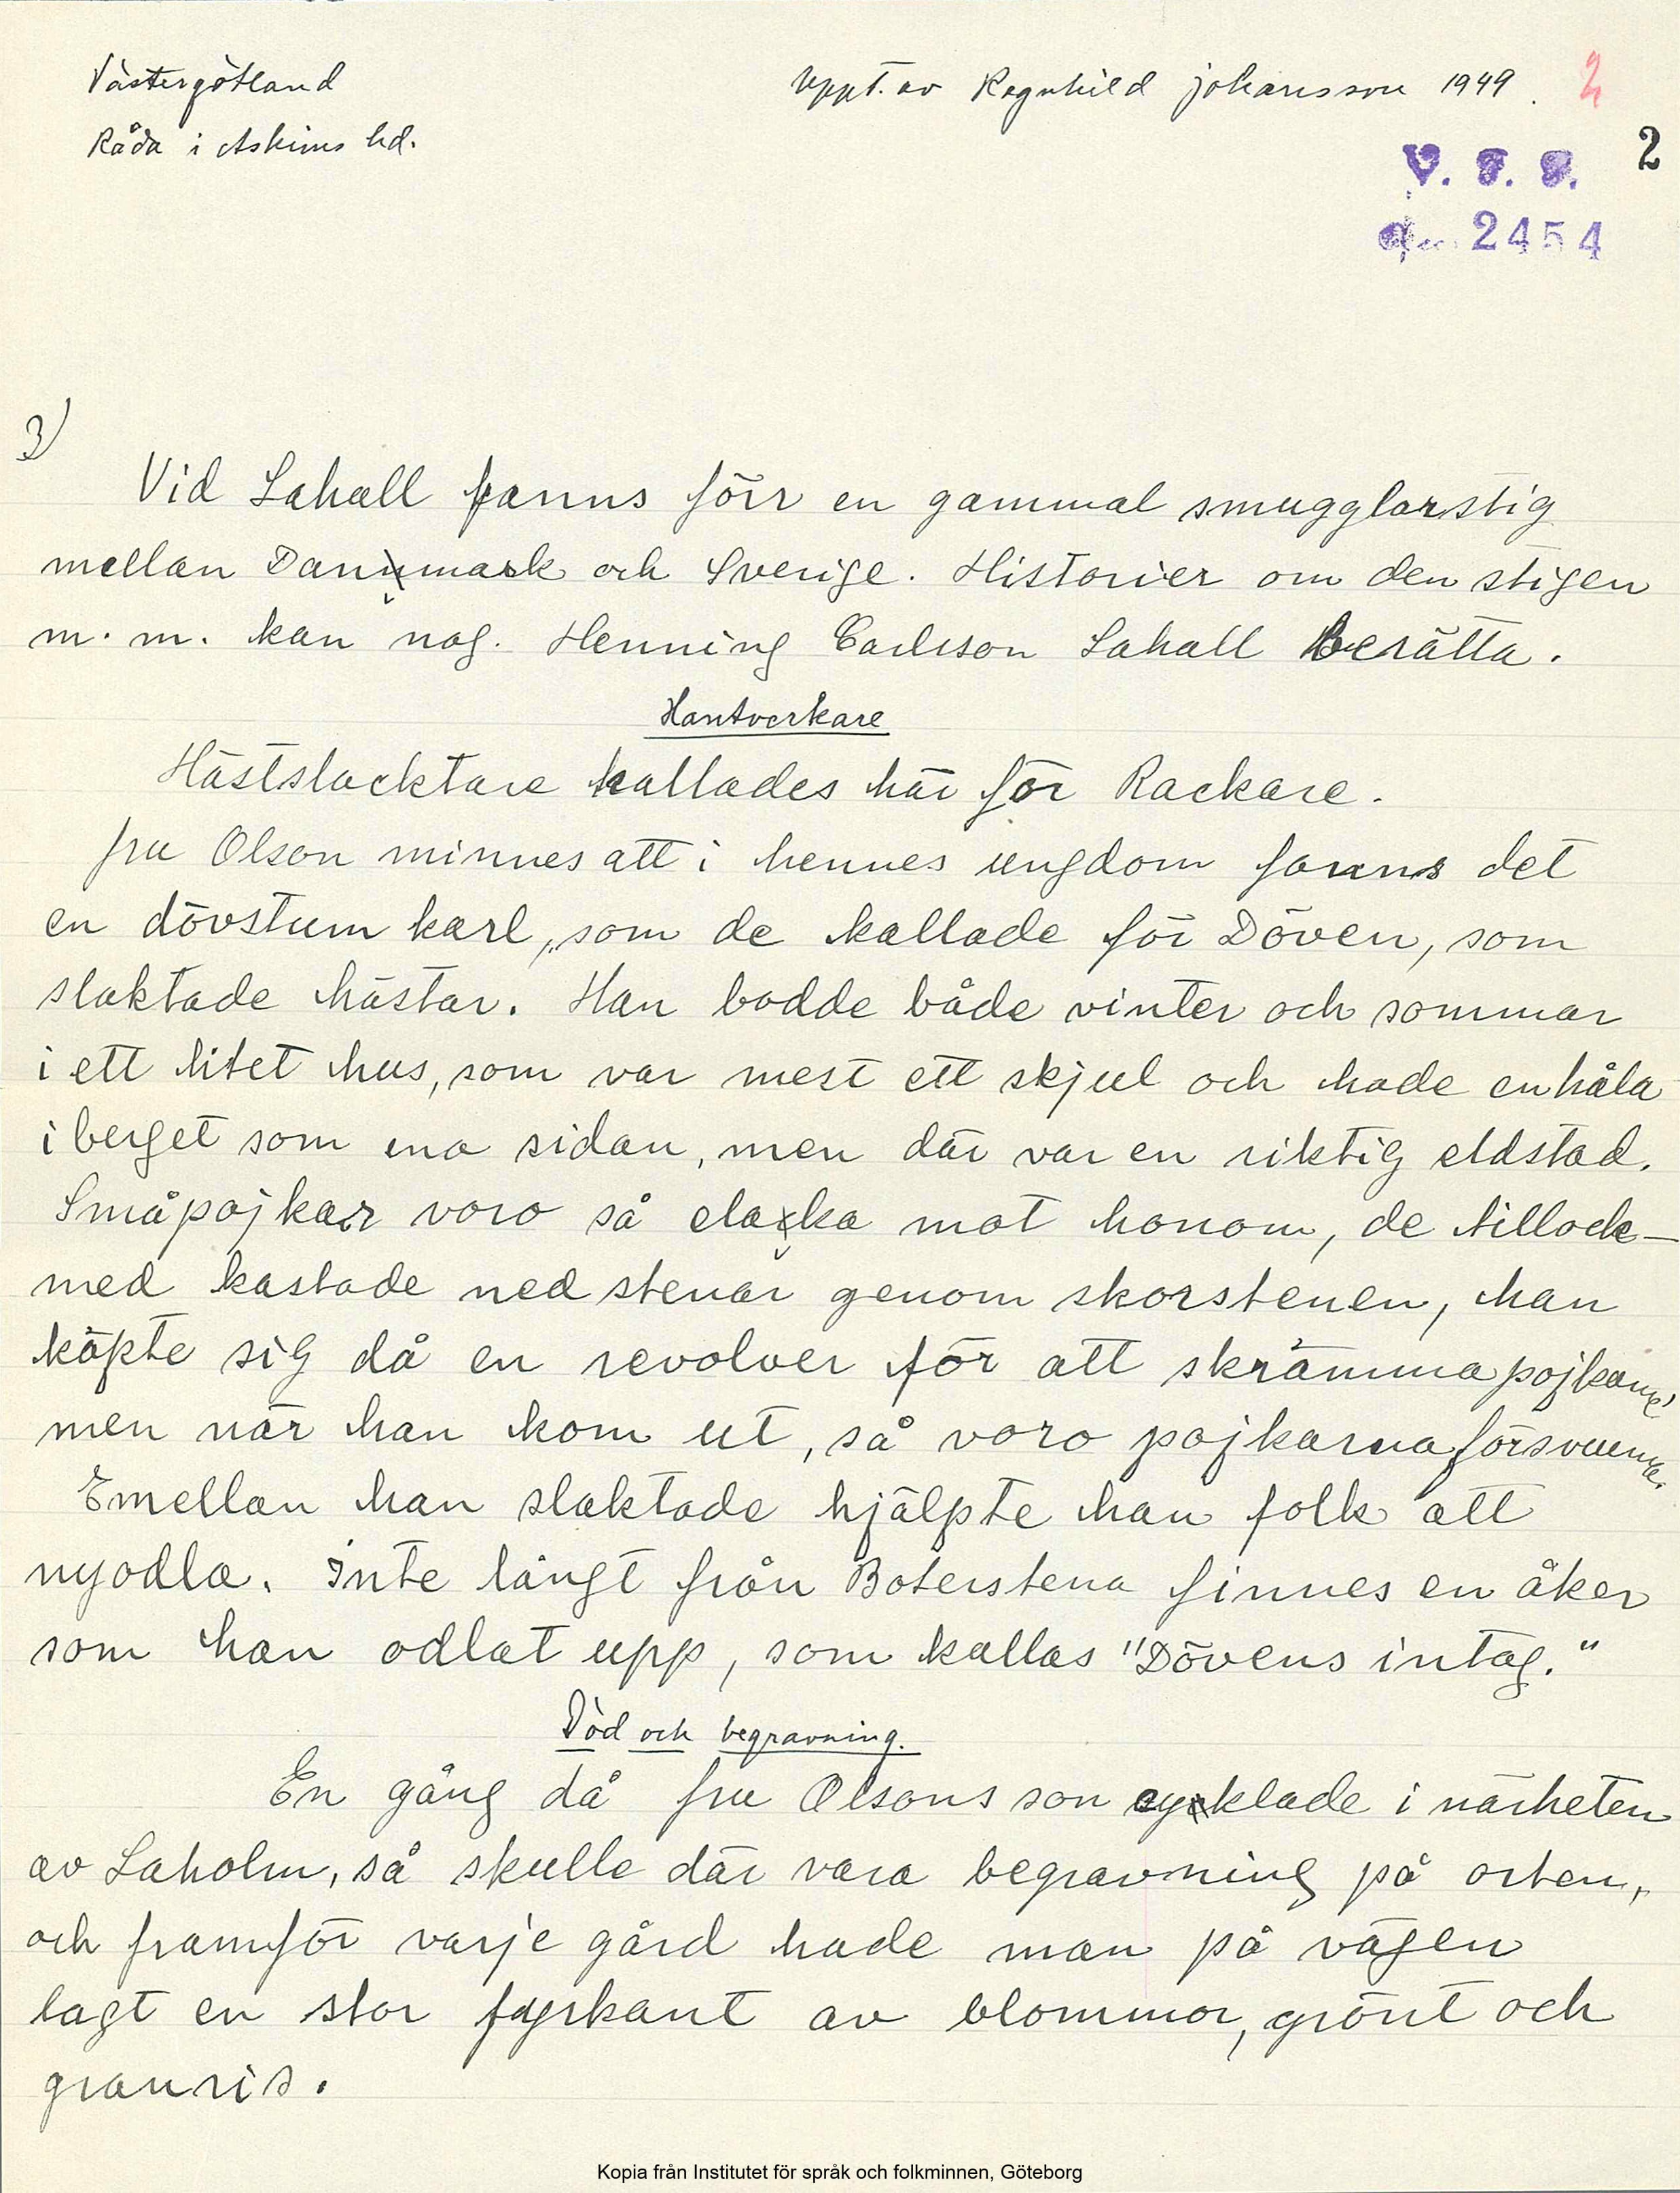 Västergötland
Uppt. av Ragnhild Johansson 1949.
2
Råda i Askims hd.
2
V. F. F.
2454
3)
Vid Lahall fanns förr en gammal smugglarstig
mellan Danmark och Sverige. Historier om den stigen
m. m. kan nog. Henning Carlsson Lahall Berätta.
Hantverkare
Hästslacktare kallades här för Rackare.
fru Olson minnes att i hennes ungdom fanns det
en dövstum karl, som de kallade för Döven, som
slaktade hästar. Han bodde både vinter och sommar
i ett litet hus, som var mest ett skjul och hade en håla
i berget som ena sidan, men där var en riktig eldstad.
Småpojkar voro så elaka mot honom, de tillock-
med kastade ned stenar genom skorstenen, han
köpte sig då en revolver för att skrämma pojkarne,
men när han kom ut, så voro pojkarna försvunna.
Emellan han slaktade hjälpte han folk att
nyodla. Inte långt från Boterstena finnes en åker
som han odlat upp, som kallas "Dövens intag."
Död och begravning.
En gång då fru Olsons son cyklade i närheten
av Laholm, så skulle där vara begravning på orten,
och framför varje gård hade man på vägen
lagt en stor fyrkant av blommor, grönt och
granris.
Kopia från Institutet för språk och folkminnen, Göteborg